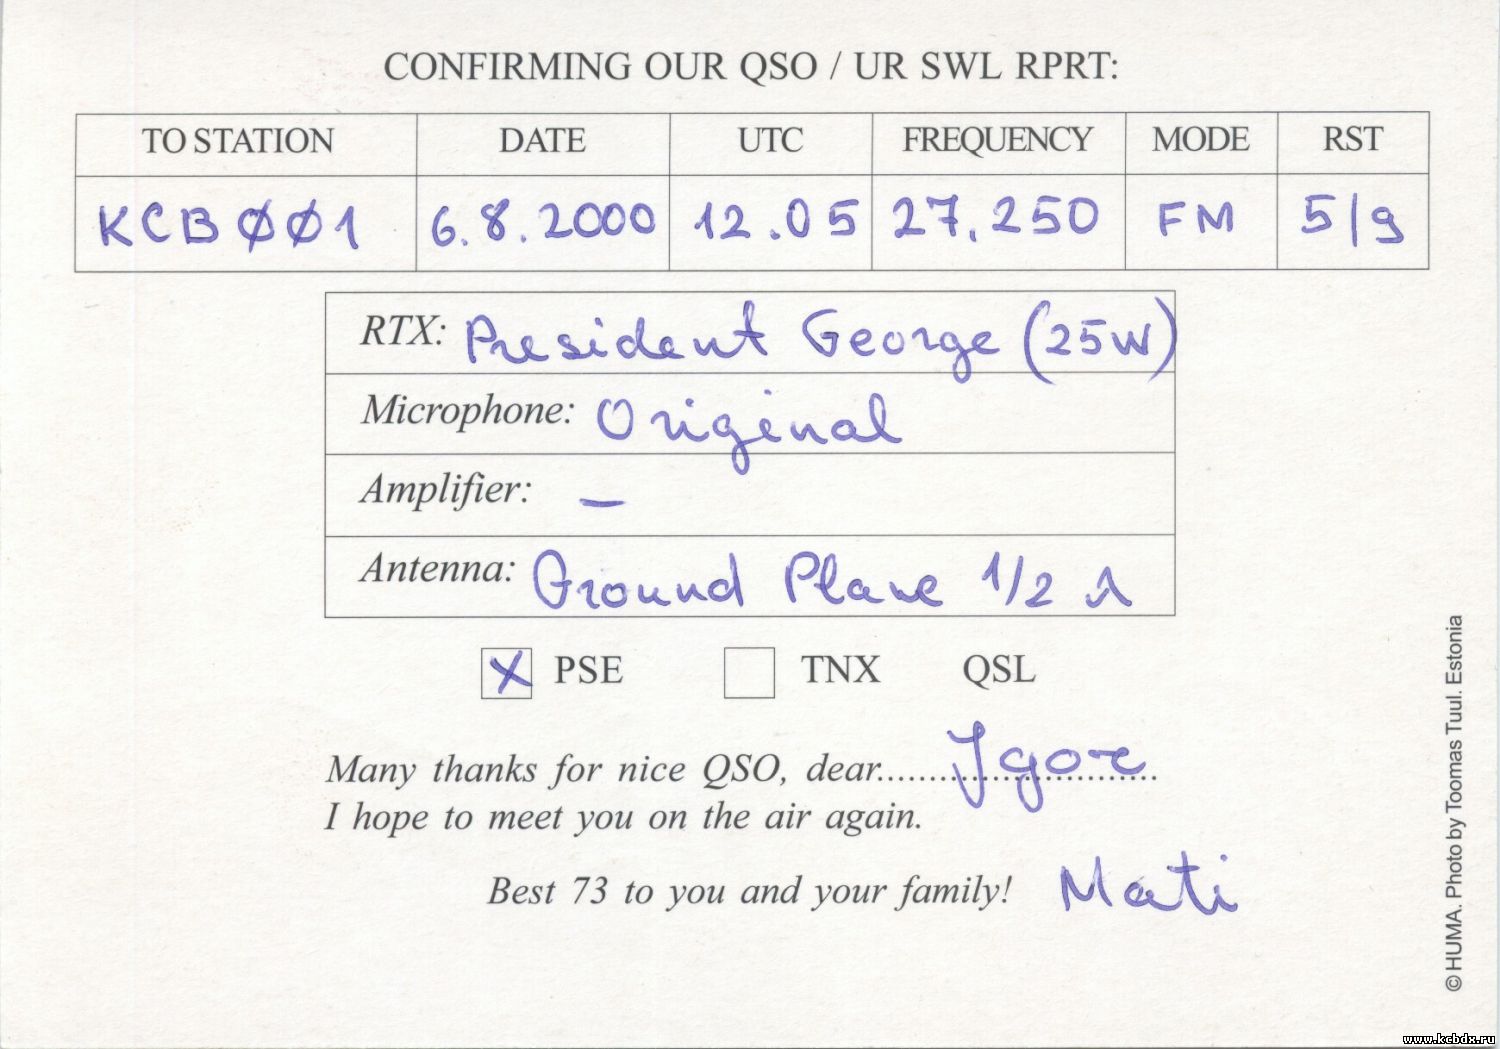 CONFIRMING OUR QSO / UR SWL RPRT:
TO STATION DATE UTC FREQUENCY MODE RST
KCBØØ1 6.8.2000 12.05 27.250 FM 5/9
RTX: President George (25W)
Microphone: Original
Amplifier: –
Antenna: Ground Plane 1/2 λ
X PSE TNX QSL
Many thanks for nice QSO, dear.......................... Igor
I hope to meet you on the air again.
Best 73 to you and your family! Mati
© HUMA. Photo by Toomas Tuul. Estonia
www.kcbdx.ru